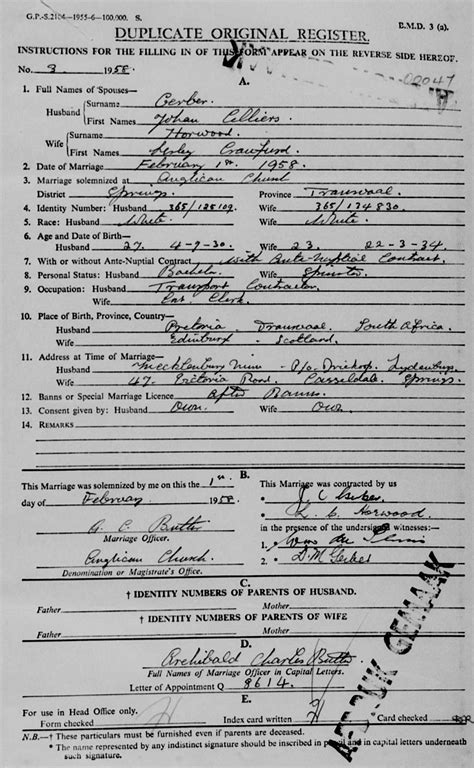 G.P.-S.2104—1955-6—100,000. S.
B.M.D. 3 (a).
DUPLICATE ORIGINAL REGISTER.
INSTRUCTIONS FOR THE FILLING IN OF THIS FORM APPEAR ON THE REVERSE SIDE HEREOF.
No. 3 1958. 00047
A.
1. Full Names of Spouses—
Husband Surname Gerber.
First Names Johan Cilliers
Wife Surname Horwood.
First Names Lesley Crawfurd.
2. Date of Marriage February 1st. 1958.
3. Marriage solemnized at Anglican Church
District Springs. Province Transvaal.
4. Identity Number: Husband 365/125109. Wife 365/124830.
5. Race: Husband White. Wife White.
6. Age and Date of Birth—
Husband 27. 4-9-30. Wife 23. 22-3-34.
7. With or without Ante-Nuptial Contract With Ante-Nuptial Contract
8. Personal Status: Husband Bachelor Wife Spinster
9. Occupation: Husband Transport Contractor
Wife Clerk.
10. Place of Birth, Province, Country—
Husband Pretoria Transvaal South Africa.
Wife Edinburgh Scotland.
11. Address at Time of Marriage—
Husband Mecklenburg Mine P/o Driekop Lydenburg.
Wife 47. Victoria Road. Casseldale. Springs.
12. Banns or Special Marriage Licence After Banns.
13. Consent given by: Husband Own. Wife Own.
14. REMARKS
B.
This Marriage was solemnized by me on this the 1st.
day of February 1958.
A. C. Butt
Marriage Officer.
Anglican Church.
Denomination or Magistrate's Office.
This Marriage was contracted by us
J C Gerber.
L. C. Horwood
in the presence of the undersigned witnesses:—
1.
2. D. M Gerber
C.
† IDENTITY NUMBERS OF PARENTS OF HUSBAND.
Father Mother
† IDENTITY NUMBERS OF PARENTS OF WIFE
Father Mother
D.
Archibald Charles Butt
Full Names of Marriage Officer in Capital Letters.
Letter of Appointment Q 8614.
E.
For use in Head Office only.
Form checked Index card written Card checked
N.B.—† These particulars must be furnished even if parents are deceased.
* The name represented by any indistinct signature should be inscribed in pencil and in capital letters underneath
such signature.
AFDRUK GEMAAK